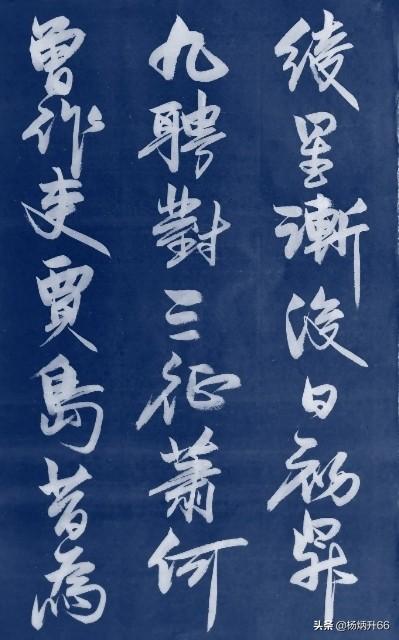 綾星漸没日初昇
九聘對三征蕭何
曾作吏賈島昔為
头条 @杨炳升66